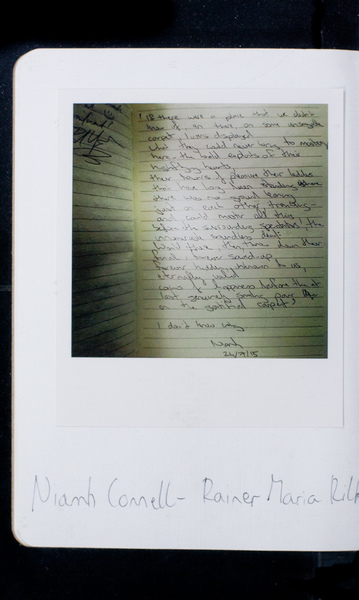 "If there was a place that we didn't
know of, on there on some unsayable
carpet, lovers displayed
what they could never bring to mastery
here – the bold exploits of their
high-flying hearts,
their towers of pleasure, their ladders
that have long been standing where
there was no ground, leaning
just on each other, trembling –
and could master all this,
before the surrounding spectators, the
innumerable soundless dead:
Would these, then, throw down their
final, forever saved-up,
forever hidden, unknown to us,
eternally valid
coins of happiness before the at
last genuinely smiling pair
on the gratified carpet?
I don't know why
Niamh
24/9/15
Niamh Connell - Rainer Maria Rilk